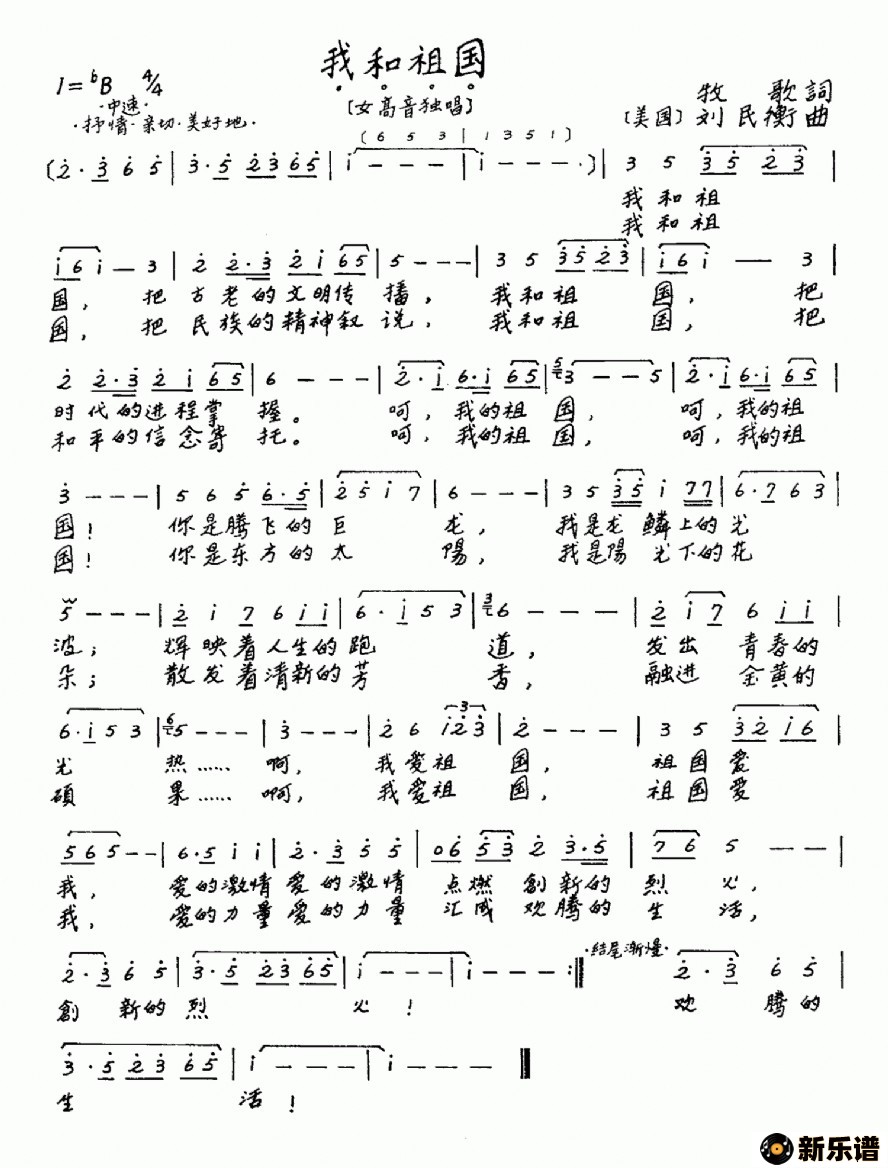 我和祖国
1=♭B 4/4
〔女高音独唱〕
·中速·
·抒情·亲切·美好地·
牧 歌 詞
〔美国〕刘民衡 曲
(6 5 3 | 1 3 5 1)
(2·3 6 5 | 3·5 23 65 | i - - - | i - - -) | 3 5 35 23 |
我和祖
我和祖
i6 i - 3 | 2 2·3 2i 65 | 5 - - - | 3 5 35 23 | i6i - 3 |
国，把古老的文明传播，我和祖国，把
国，把民族的精神叙说，我和祖国，把
2 2·3 2i 65 | 6 - - - | 2·i 6·i 65 | 5 3 - - 5 | 2·i 6·i 65 |
时代的进程掌握。呵，我的祖国，呵，我的祖
和平的信念寄托。呵，我的祖国，呵，我的祖
3 - - - | 5 6 5 6·5 | 2 5 i 7 | 6 - - - | 3 5 35 i 77 | 6·7 6 3 |
国！你是腾飞的巨龙，我是龙鳞上的光
国！你是东方的太陽，我是陽光下的花
5 - - - | 2 i 7 6 ii | 6·i 5 3 | 3 6 - - - | 2 i7 6 ii |
波；辉映着人生的跑道，发出青春的
朵；散发着清新的芳香，融进金黄的
6·i 5 3 | 6 5 - - - | 3 - - - | 2 6 i23 | 2 - - - | 3 5 32 i6 |
3
光热……啊，我爱祖国，祖国爱
硕果……啊，我爱祖国，祖国爱
565 - - | 6·5 i i | 2·3 5 5 | 06 53 2 3·5 | 76 5 - - |
我，爱的激情爱的激情点燃創新的烈火，
我，爱的力量爱的力量汇成欢腾的生活，
·结尾渐慢·
2·3 6 5 | 3·5 23 65 | i - - - | i - - - :‖ 2·3 6 5 |
創新的烈火！欢腾的
3·5 23 65 | i - - - | i - - - ‖
生活！
新乐谱